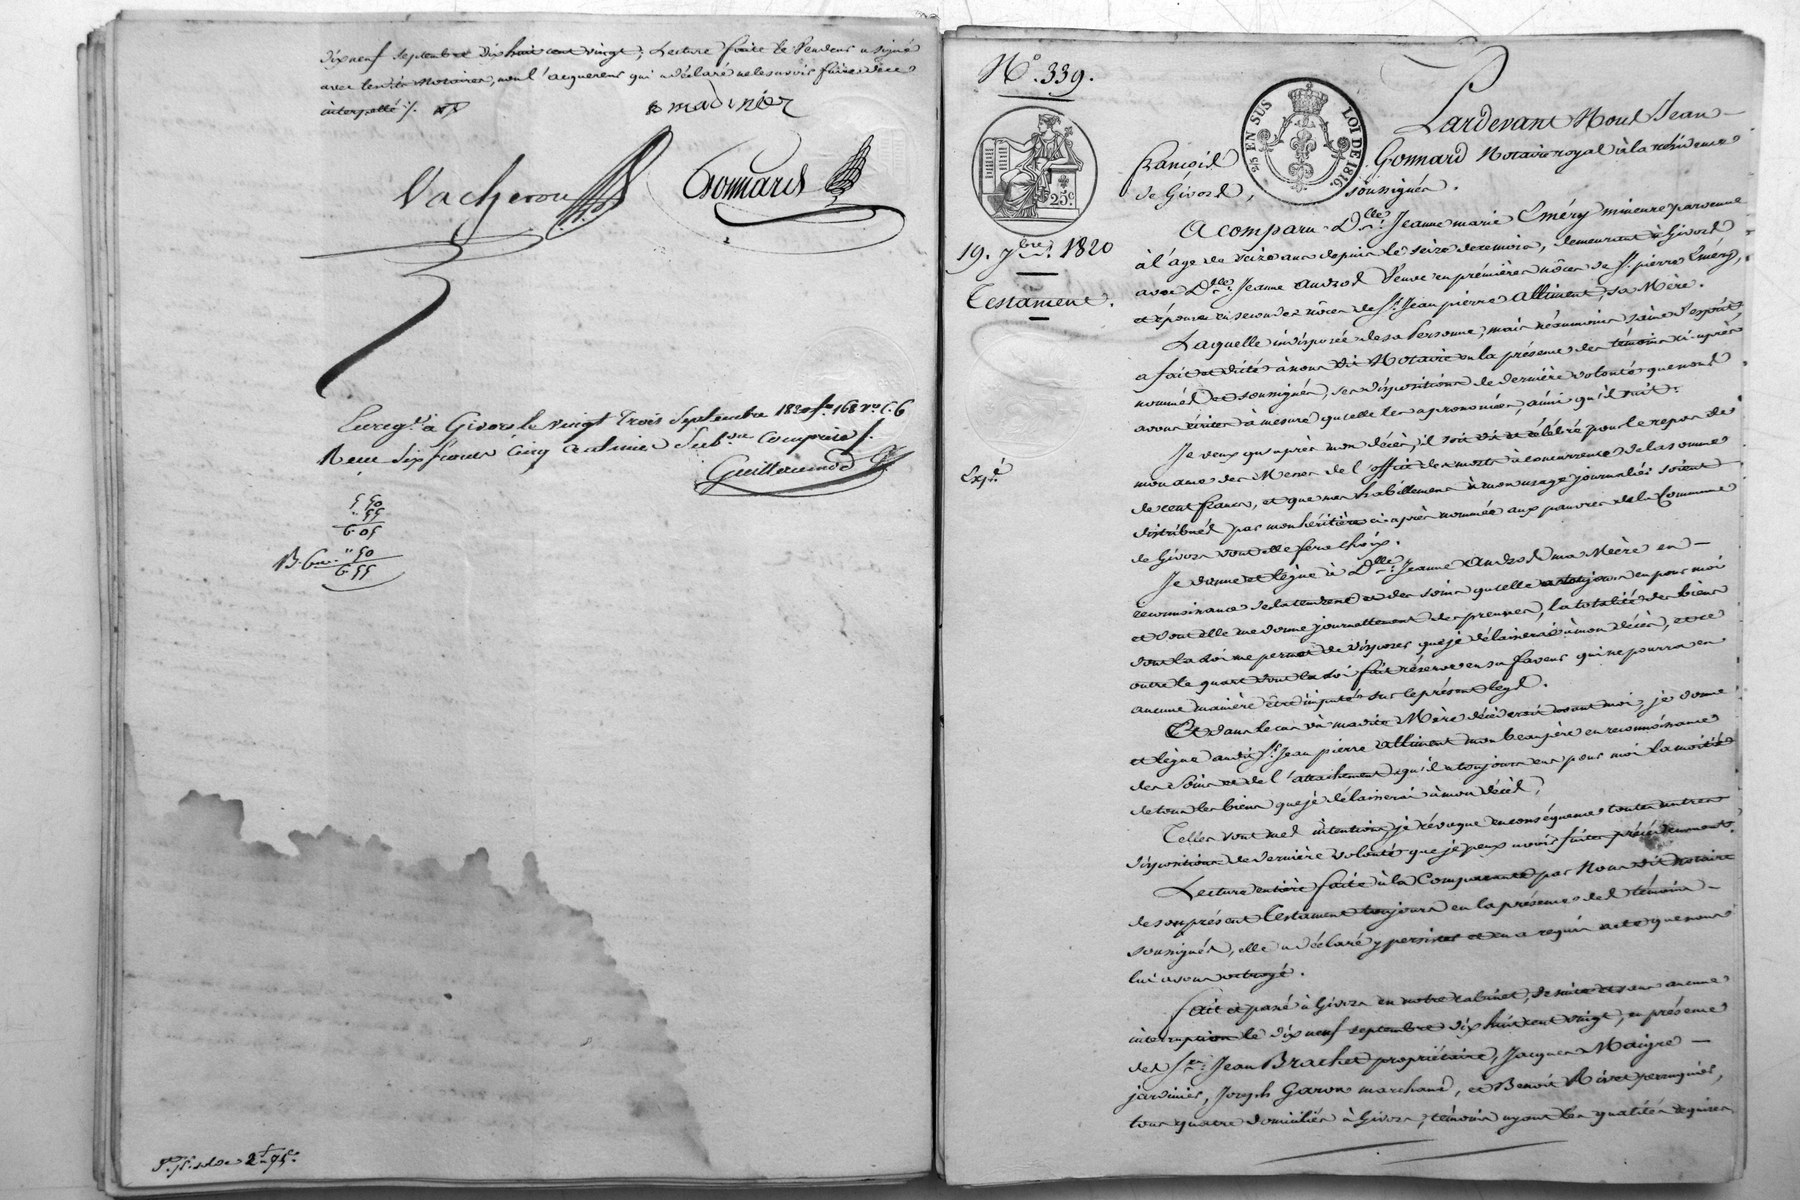 dix neuf septembre dix huit cent vingt; Lecture faite le Vendeur a signé
avec les dts Notaires, non l'acquereur qui a déclaré ne le savoir faire de ce
interpellé ./.
madinier
Vacheron
Gonnard
Enreg.é à Givors le vingt Trois Septembre 1820 f.o 168 v.o C. 6
Reçu six francs cinq centimes Sub.on Comprise ./.
Guillermond
5 50
. 55
6 05
" 50
6 55
2f 75c
N.o 339.
25 EN SUS
LOI DE 1816.
25c
19. 7bre 1820
Testament.
Exp.é
Pardevant Nous Jean
françois Gonnard Notaire royal à la résidence
de Givors, soussignés.
A comparu D.lle Jeanne marie Eméry mineure parvenue
à l'age de seize ans depuis le seize de ce mois, demeurant à Givors
avec D.lle Jeanne Audrod Veuve en premières nôces de S.r pierre Eméry,
et épouse en secondes nôces de S.r Jean pierre alliment, sa Mère.
Laquelle indisposée de sa Personne, mais néanmoins saine d'esprit,
a fait et dicté à nous dit Notaire en la présence des témoins ci après
nommés et soussignés, ses dispositions de dernière volonté que nous
avons écrites à mesure qu'elle les a prononcées, ainsi qu'il suit:
Je veux qu'après mon décès, il soit dit et célébré pour le repos de
mon ame des Messes de l'office des morts à concurrence de la somme
de cent francs, et que mes habillements à mon usage journaliés soient
distribués par mon héritière ci-après nommée aux pauvres de la Commune
de Givors dont elle fera choix.
Je donne et lègue à D.lle Jeanne Audrod ma Mère en
reconnoissance de la tendresse et des soins qu'elle a toujours eu pour moi
et dont elle me donne journellement des preuves, la totalité des biens
dont la loi me permet de disposer que je délaisserai à mon décès, et ce
outre le quart dont la loi fait réserve en sa faveur qui ne pourra en
aucune manière être imputé sur le présent legs.
Et dans le cas où madite Mère décèderait avant moi, je donne
et lègue audit S.r Jean pierre alliment mon beaupère en reconnoissance
des soins et de l'attachement qu'il a toujours eu pour moi la moitié
de tous les biens que je délaisserai à mon décès,
Telles sont mes intentions, je révoque en conséquence toutes autres
dispositions de dernière volonté que je peux avoir faites précédemment.
Lecture entière faite à la Comparante par Nous dit notaire
de son présent Testament toujours en la présence des témoins
soussignés, elle a déclaré y persister et en a requis acte que nous
lui avons octroyé.
fait et passé à Givors en notre cabinet, de suite et sans aucune
interruption le dix neuf septembre dix huit cent vingt, en présence
des S.rs Jean Brachet propriétaire, Jacques Maigre
jardinier, Joseph Garon marchand, et Benoit Rivet perruquier,
tous quatre domiciliés à Givors, témoins ayant les qualités requises